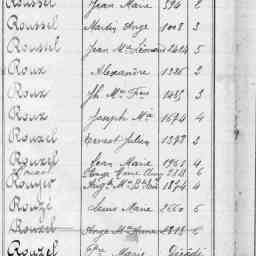 Roussel Jean Marie 594 2
Roussel Martin Ange 1008 3
Roussel Jean Mie 1414 5
Roux Alexandre 1326 3
Roux Jh Mie Frs 1485 3
Roux Joseph Mie 1674 4
Rouxel Ernest Julien 1378 3
Rouxel Jean Marie 1961 4
Ange Marie Aug 6
Rouyer Aug. 1874 4
Rouzé Louis Marie 2660 6
Rouzel Ange Mie 6
Rouzel Marie Décédé